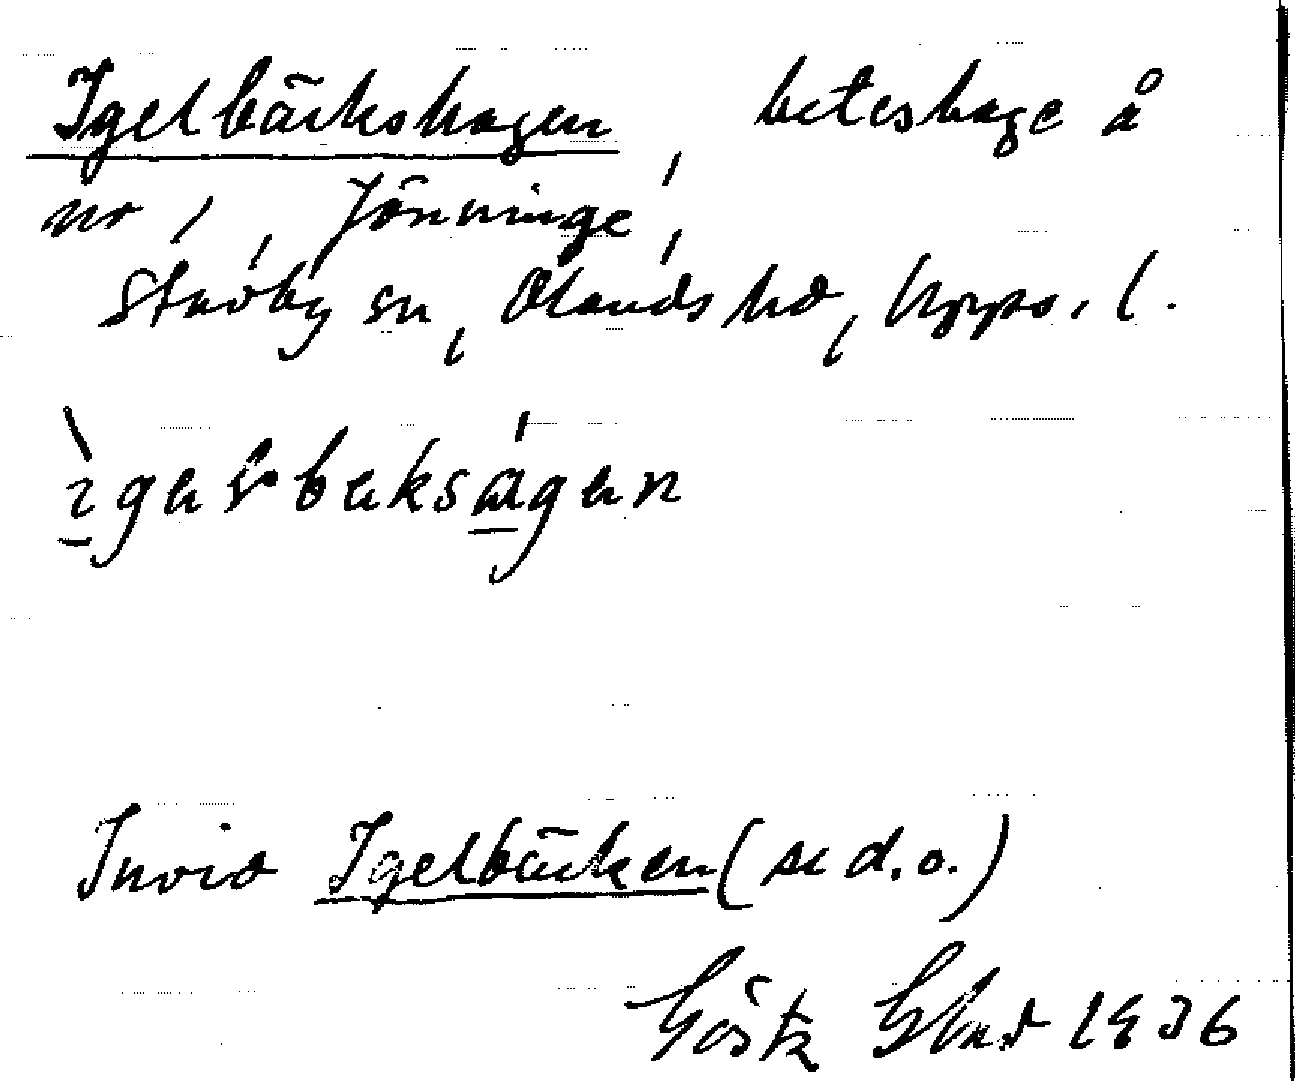 Igelbäckshagen beteshage å
nr 1, Jönninge,
Stavby sn, Olands hd, Upps. l.
Invid Igelbäcken (se d.o.)
Gösta 1936